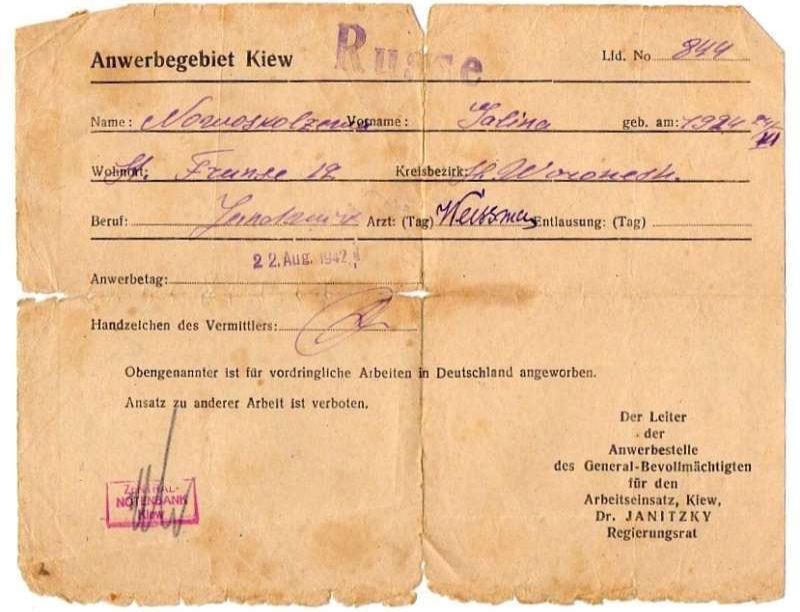 Anwerbegebiet Kiew Russe Lfd. No 844
Name: Vorname: Galina geb. am: 1924
Wohnort: St. Frunse 12 Kreisbezirk: St. Woronesh.
Beruf: Arzt: (Tag) Entlausung: (Tag)
22. Aug. 1942
Anwerbetag:
Handzeichen des Vermittlers:
Obengenannter ist für vordringliche Arbeiten in Deutschland angeworben.
Ansatz zu anderer Arbeit ist verboten.
Der Leiter
der
Anwerbestelle
des General-Bevollmächtigten
für den
Arbeitseinsatz, Kiew,
Dr. JANITZKY
Regierungsrat
ZENTRAL-
NOTENBANK
Kiew